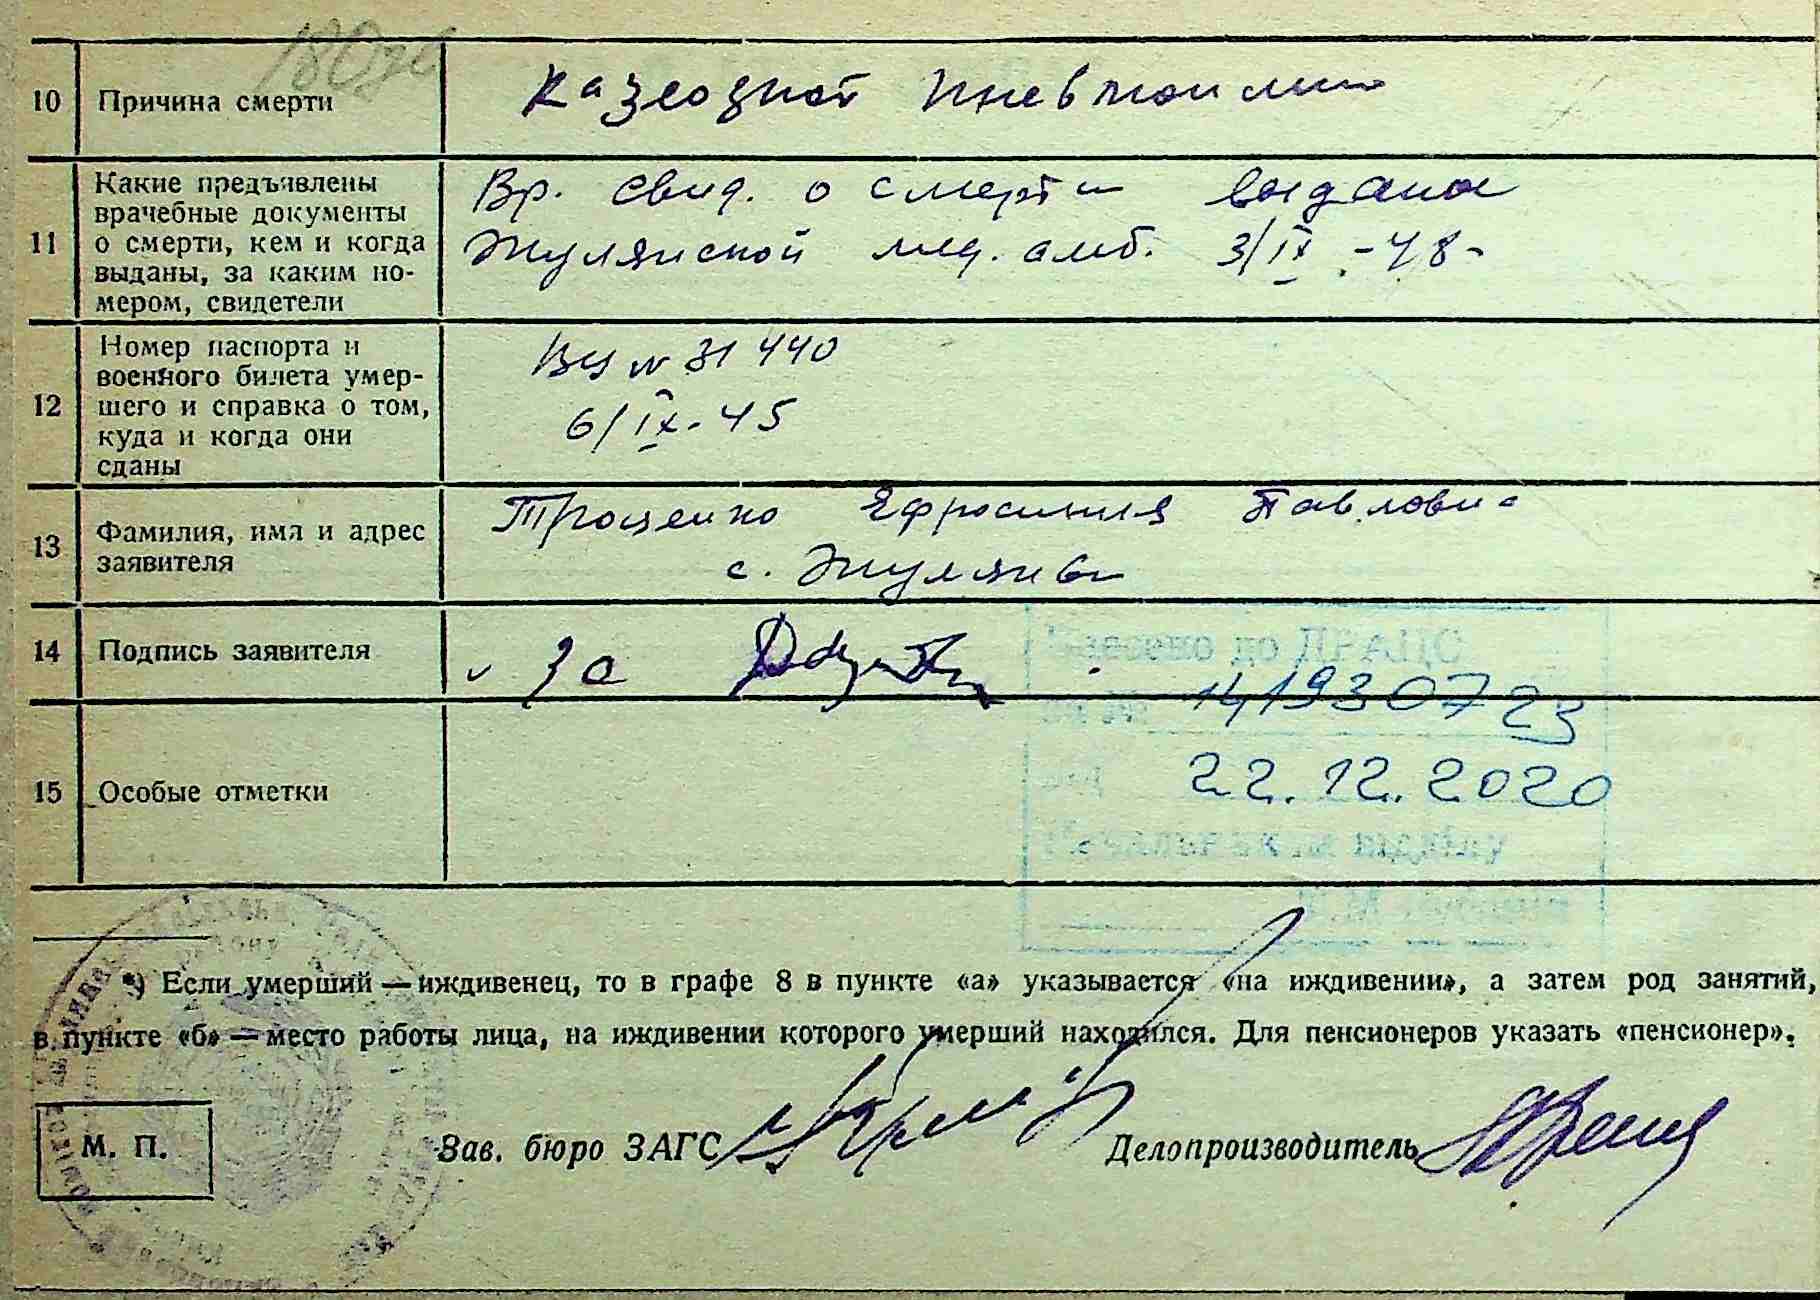 10 Причина смерти
Казеозная пневмония
11 Какие предъявлены
врачебные документы
о смерти, кем и когда
выданы, за каким но-
мером, свидетели
Вр. свид. о смерти выдана
Жулянской мед. амб. 3/IX-48-
12 Номер паспорта и
военного билета умер-
шего и справка о том,
куда и когда они
сданы
№ 31440
6/IX-45
13 Фамилия, имя и адрес
заявителя
Троценко Ефросиния Павловна
с. Жуляны
14 Подпись заявителя
за
до ДРАЦС
141930723
15 Особые отметки
22.12.2020
відділу
*) Если умерший — иждивенец, то в графе 8 в пункте «а» указывается «на иждивении», а затем род занятий,
в пункте «б» — место работы лица, на иждивении которого умерший находился. Для пенсионеров указать «пенсионер».
М. П.
Зав. бюро ЗАГС
Делопроизводитель